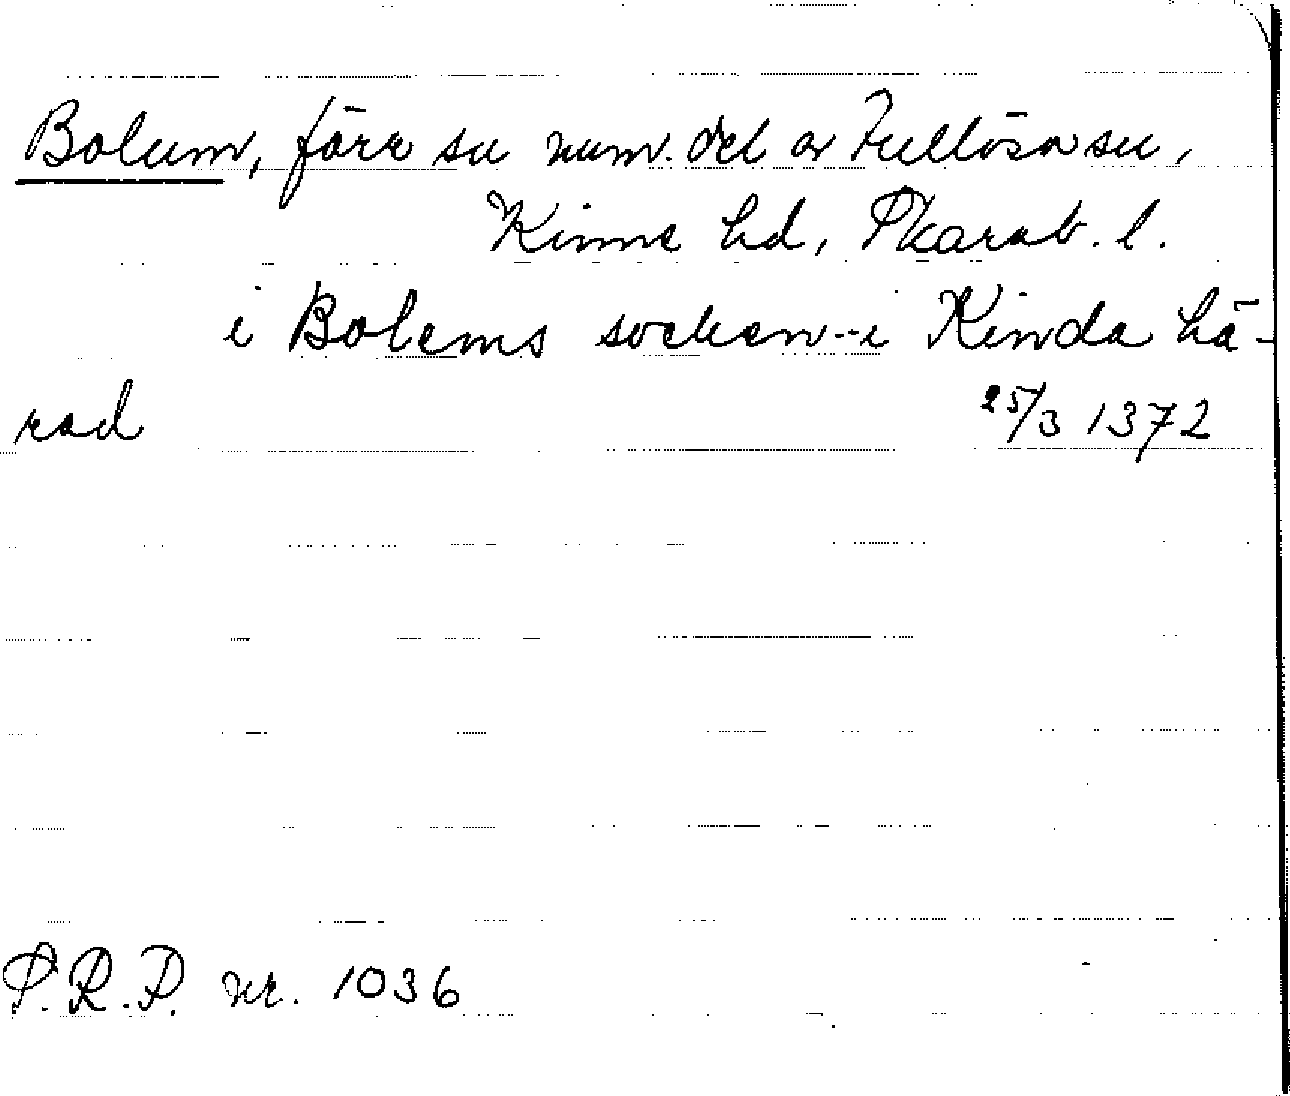 Bolum, förr sn numv. del av Fullösa sn,
Kinne hd, Skarab. l.
i Bolems socken--i Kinda hä-
rad 25/3 1372
S.R.P. nr. 1036